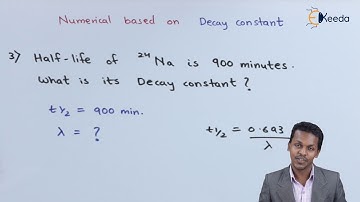 Numerical based on Decay constant
Ekeeda
3) Half-life of ²⁴Na is 900 minutes.
What is its Decay constant?
t½ = 900 min.
λ = ?
t½ = 0.693
λ